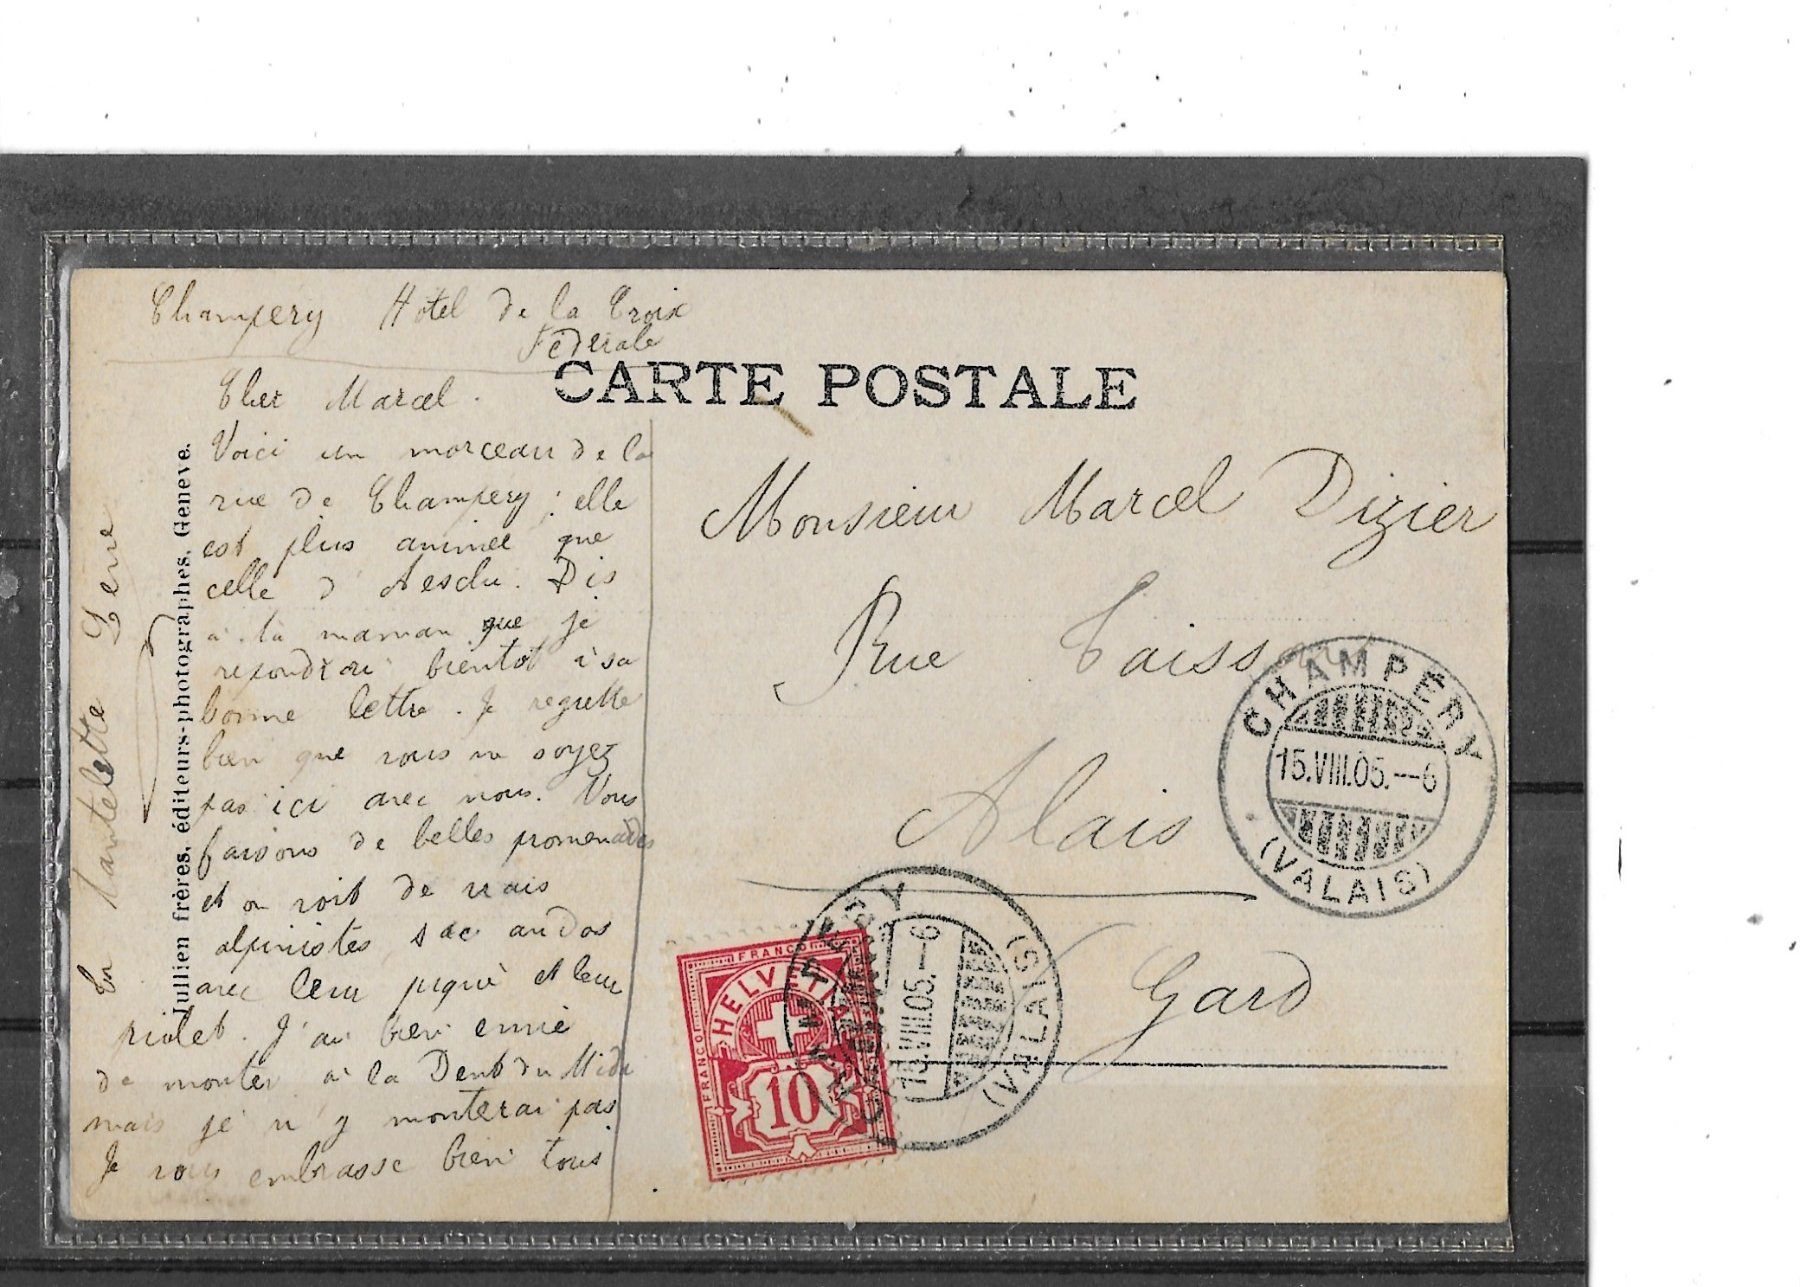 Champery Hotel de la Croix
Féderale
CARTE POSTALE
Cher Marcel.
Voici un morceau de la
rue de Champery ; elle
est plus animée que
celle d' Aesclu. Dis
à ta maman que je
répondrai bientot à sa
bonne lettre. Je regrette
bien que vous ne soyez
pas ici avec nous. Nous
faisons de belles promenades
et on voit de vrais
alpinistes sac au dos
avec leur piquè et leur
piolet. J'ai bien envie
de monter à la Dent du Midi
mais je n'y monterai pas
Je vous embrasse bien tous
Jullien frères, éditeurs-photographes, Genève.
Monsieur Marcel Dizier
Rue
Alais
Gard
CHAMPERY
15.VIII.05.--6
(VALAIS)
CHAMPERY
15.VIII.05.--6
(VALAIS)
FRANCO
FRANCO
HELVETIA
10